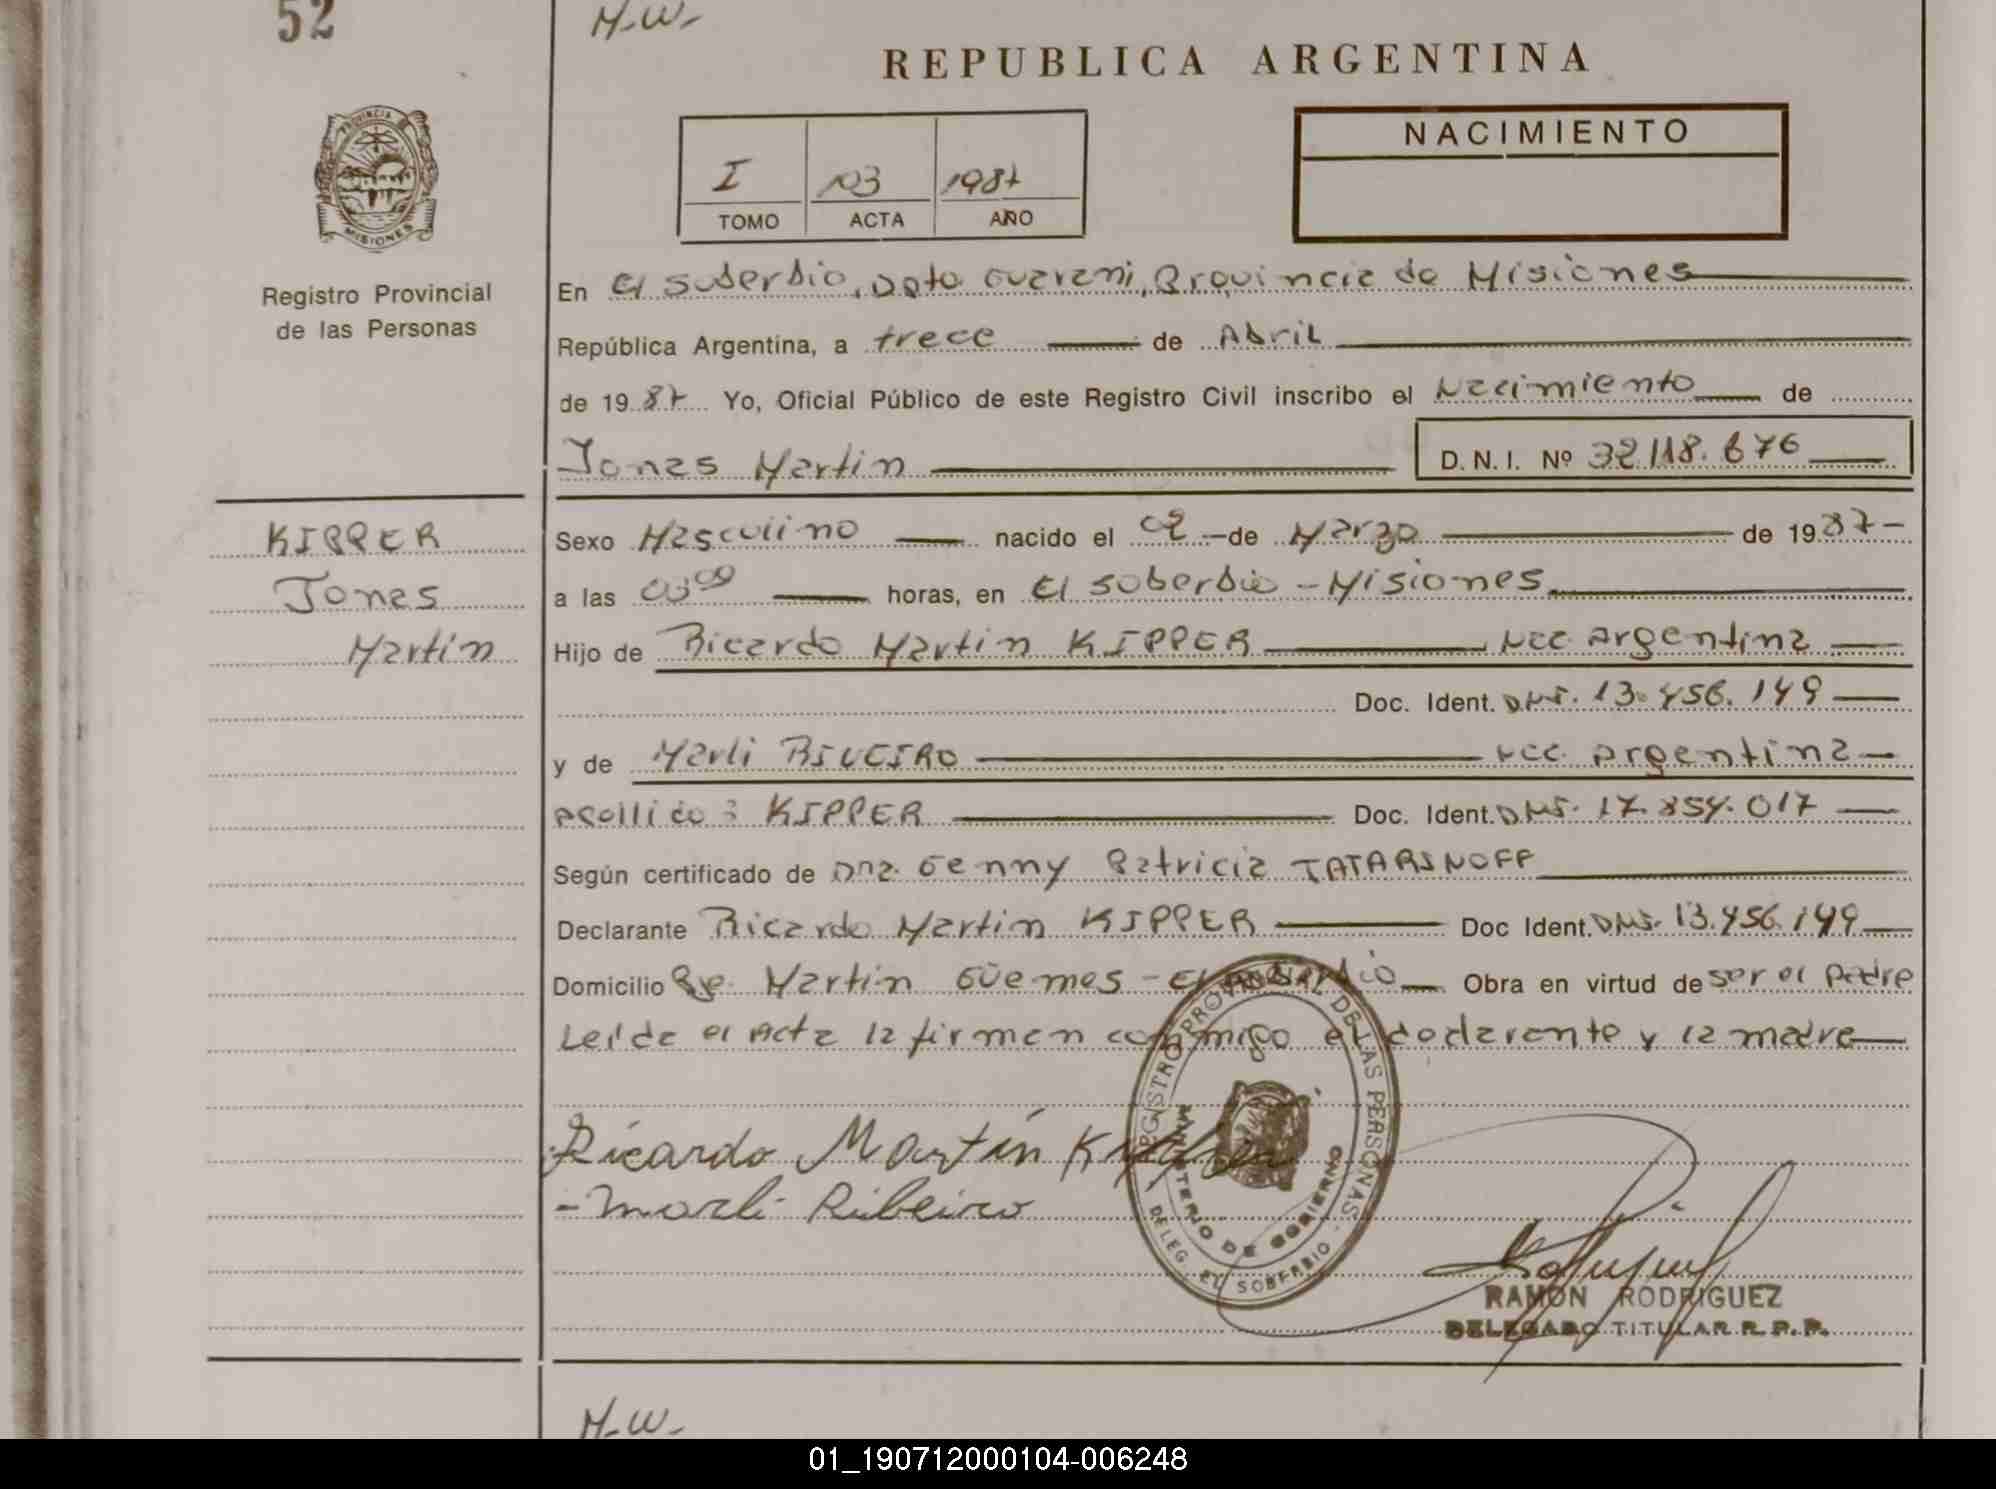 52
H-W-
REPUBLICA ARGENTINA
PROVINCIA DE
MISIONES
Registro Provincial
de las Personas
I 103 1987
TOMO ACTA AÑO
NACIMIENTO
En El soberbio, Dpto Guarani, Provincia de Misiones
República Argentina, a trece de Abril
de 1987 Yo, Oficial Público de este Registro Civil inscribo el Nacimiento de
Jonas Martin D.N.I. Nº 32.118.676
KIPPER
Jonas
Martin
Sexo Masculino nacido el 02 de Marzo de 1987-
a las 03 00 horas, en El soberbio - Misiones
Hijo de Ricardo Martin KIPPER Nac Argentina
Doc. Ident. DNI. 13.456.149
y de Marli RIVEIRO Nac. Argentina
apellido: KIPPER Doc. Ident. DNI. 17.854.017
Según certificado de Dra. Genny Patricia TATARINOFF
Declarante Ricardo Martin KIPPER Doc Ident. DNI. 13.456.149
Domicilio Bje. Martin Güemes - El soberbio Obra en virtud de ser el padre
Leída el Acta la firman conmigo el declarante y la madre
REGISTRO PROVINCIAL DE LAS PERSONAS
MINISTERIO DE GOBIERNO
DELEG. EL SOBERBIO
Ricardo Martín Kipper
- Marli Ribeiro
RAMON RODRIGUEZ
DELEGADO TITULAR R.P.P.
H-W-
01_190712000104-006248